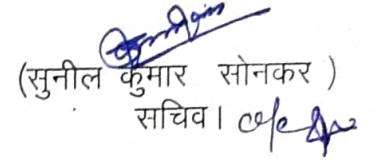 (सुनील कुमार सोनकर )
सचिव।